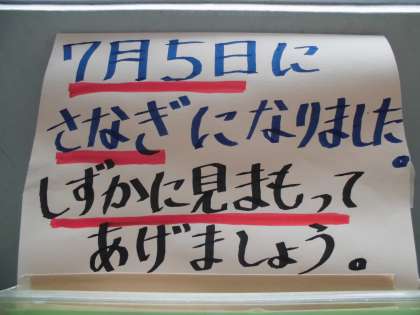 7月5日に
さなぎになりました。
しずかに見まもって
あげましょう。